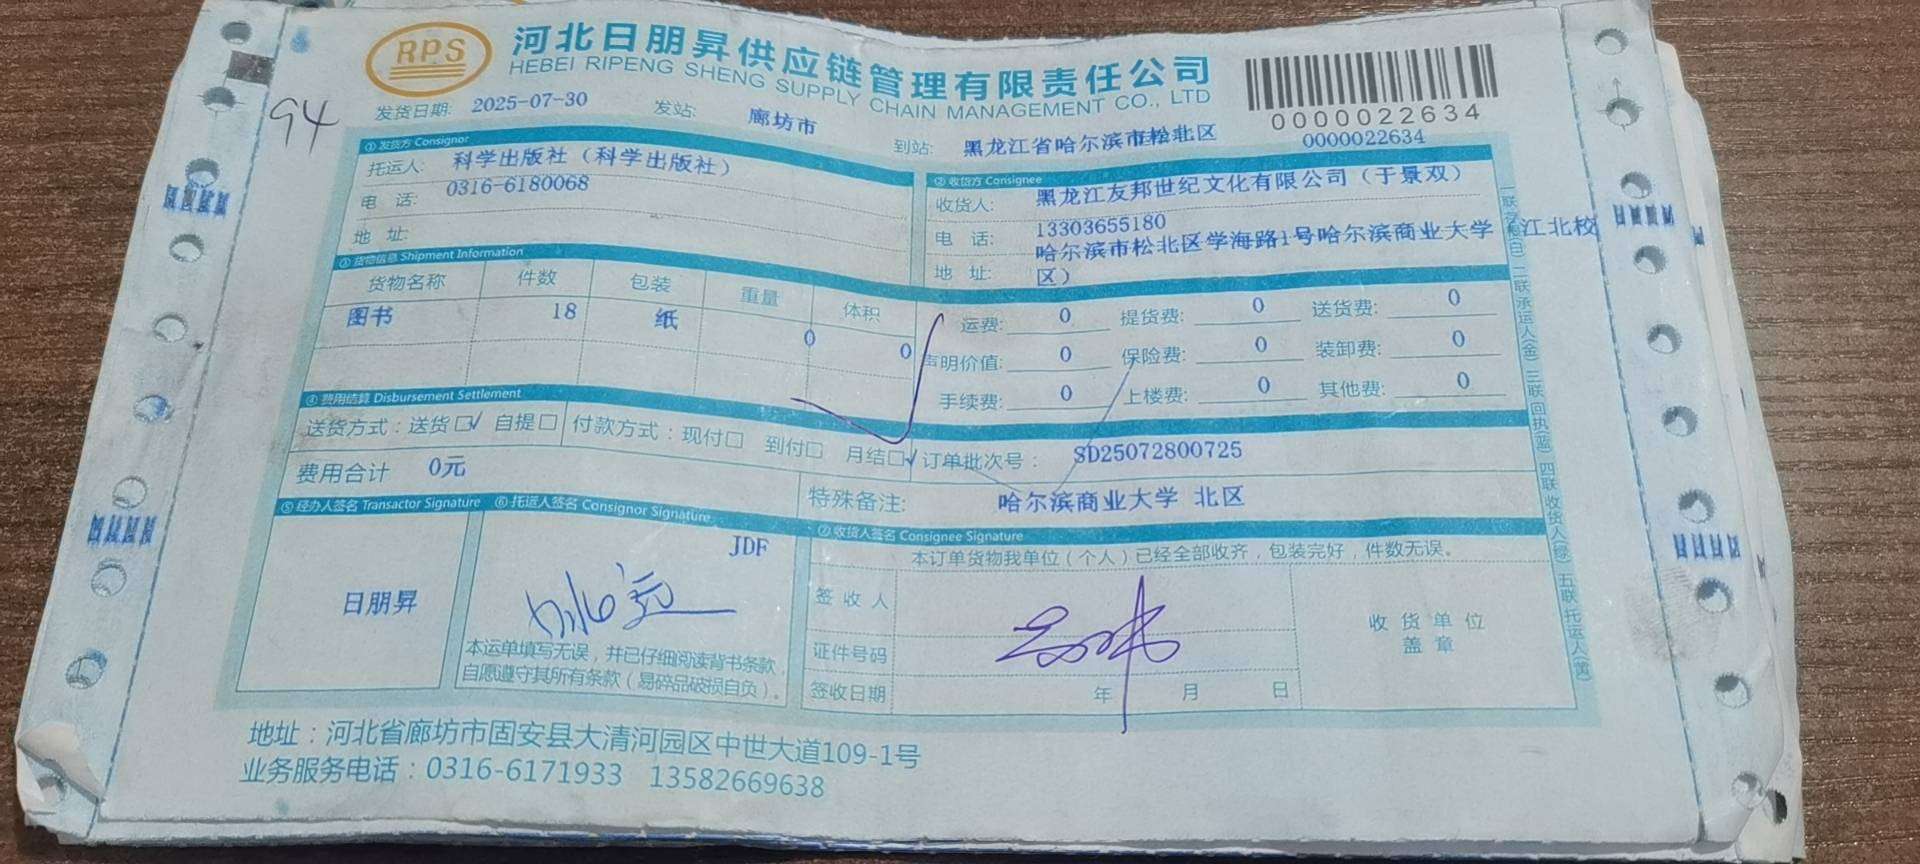 RPS
河北日朋昇供应链管理有限责任公司
HEBEI RIPENG SHENG SUPPLY CHAIN MANAGEMENT CO., LTD
0000022634
94
发货日期: 2025-07-30 发站: 廊坊市 到站: 黑龙江省哈尔滨市松北区 0000022634
① 发货方 Consignor
托运人: 科学出版社（科学出版社）
电 话: 0316-6180068
地 址:
② 收货方 Consignee
收货人: 黑龙江友邦世纪文化有限公司（于景双）
电 话: 13303655180
地 址: 哈尔滨市松北区学海路1号哈尔滨商业大学 江北校
区）
③ 货物信息 Shipment Information
货物名称 件数 包装 重量 体积
图书 18 纸 0 0
运费: 0 提货费: 0 送货费: 0
声明价值: 0 保险费: 0 装卸费: 0
手续费: 0 上楼费: 0 其他费: 0
④ 费用结算 Disbursement Settlement
送货方式：送货☐√ 自提☐ 付款方式：现付☐ 到付☐ 月结☐√ 订单批次号： SD25072800725
费用合计 0元
特殊备注: 哈尔滨商业大学 北区
⑤ 经办人签名 Transactor Signature
日朋昇
⑥ 托运人签名 Consignor Signature
JDF
本运单填写无误，并已仔细阅读背书条款，
自愿遵守其所有条款（易碎品破损自负）。
⑦ 收货人签名 Consignee Signature
本订单货物我单位（个人）已经全部收齐，包装完好，件数无误。
签 收 人
证件号码
签收日期 年 月 日
收 货 单 位
盖 章
二联承运人(金) 三联 回执(蓝) 四联 收货人(绿) 五联 托运人(黄)
地址：河北省廊坊市固安县大清河园区中世大道109-1号
业务服务电话：0316-6171933 13582669638